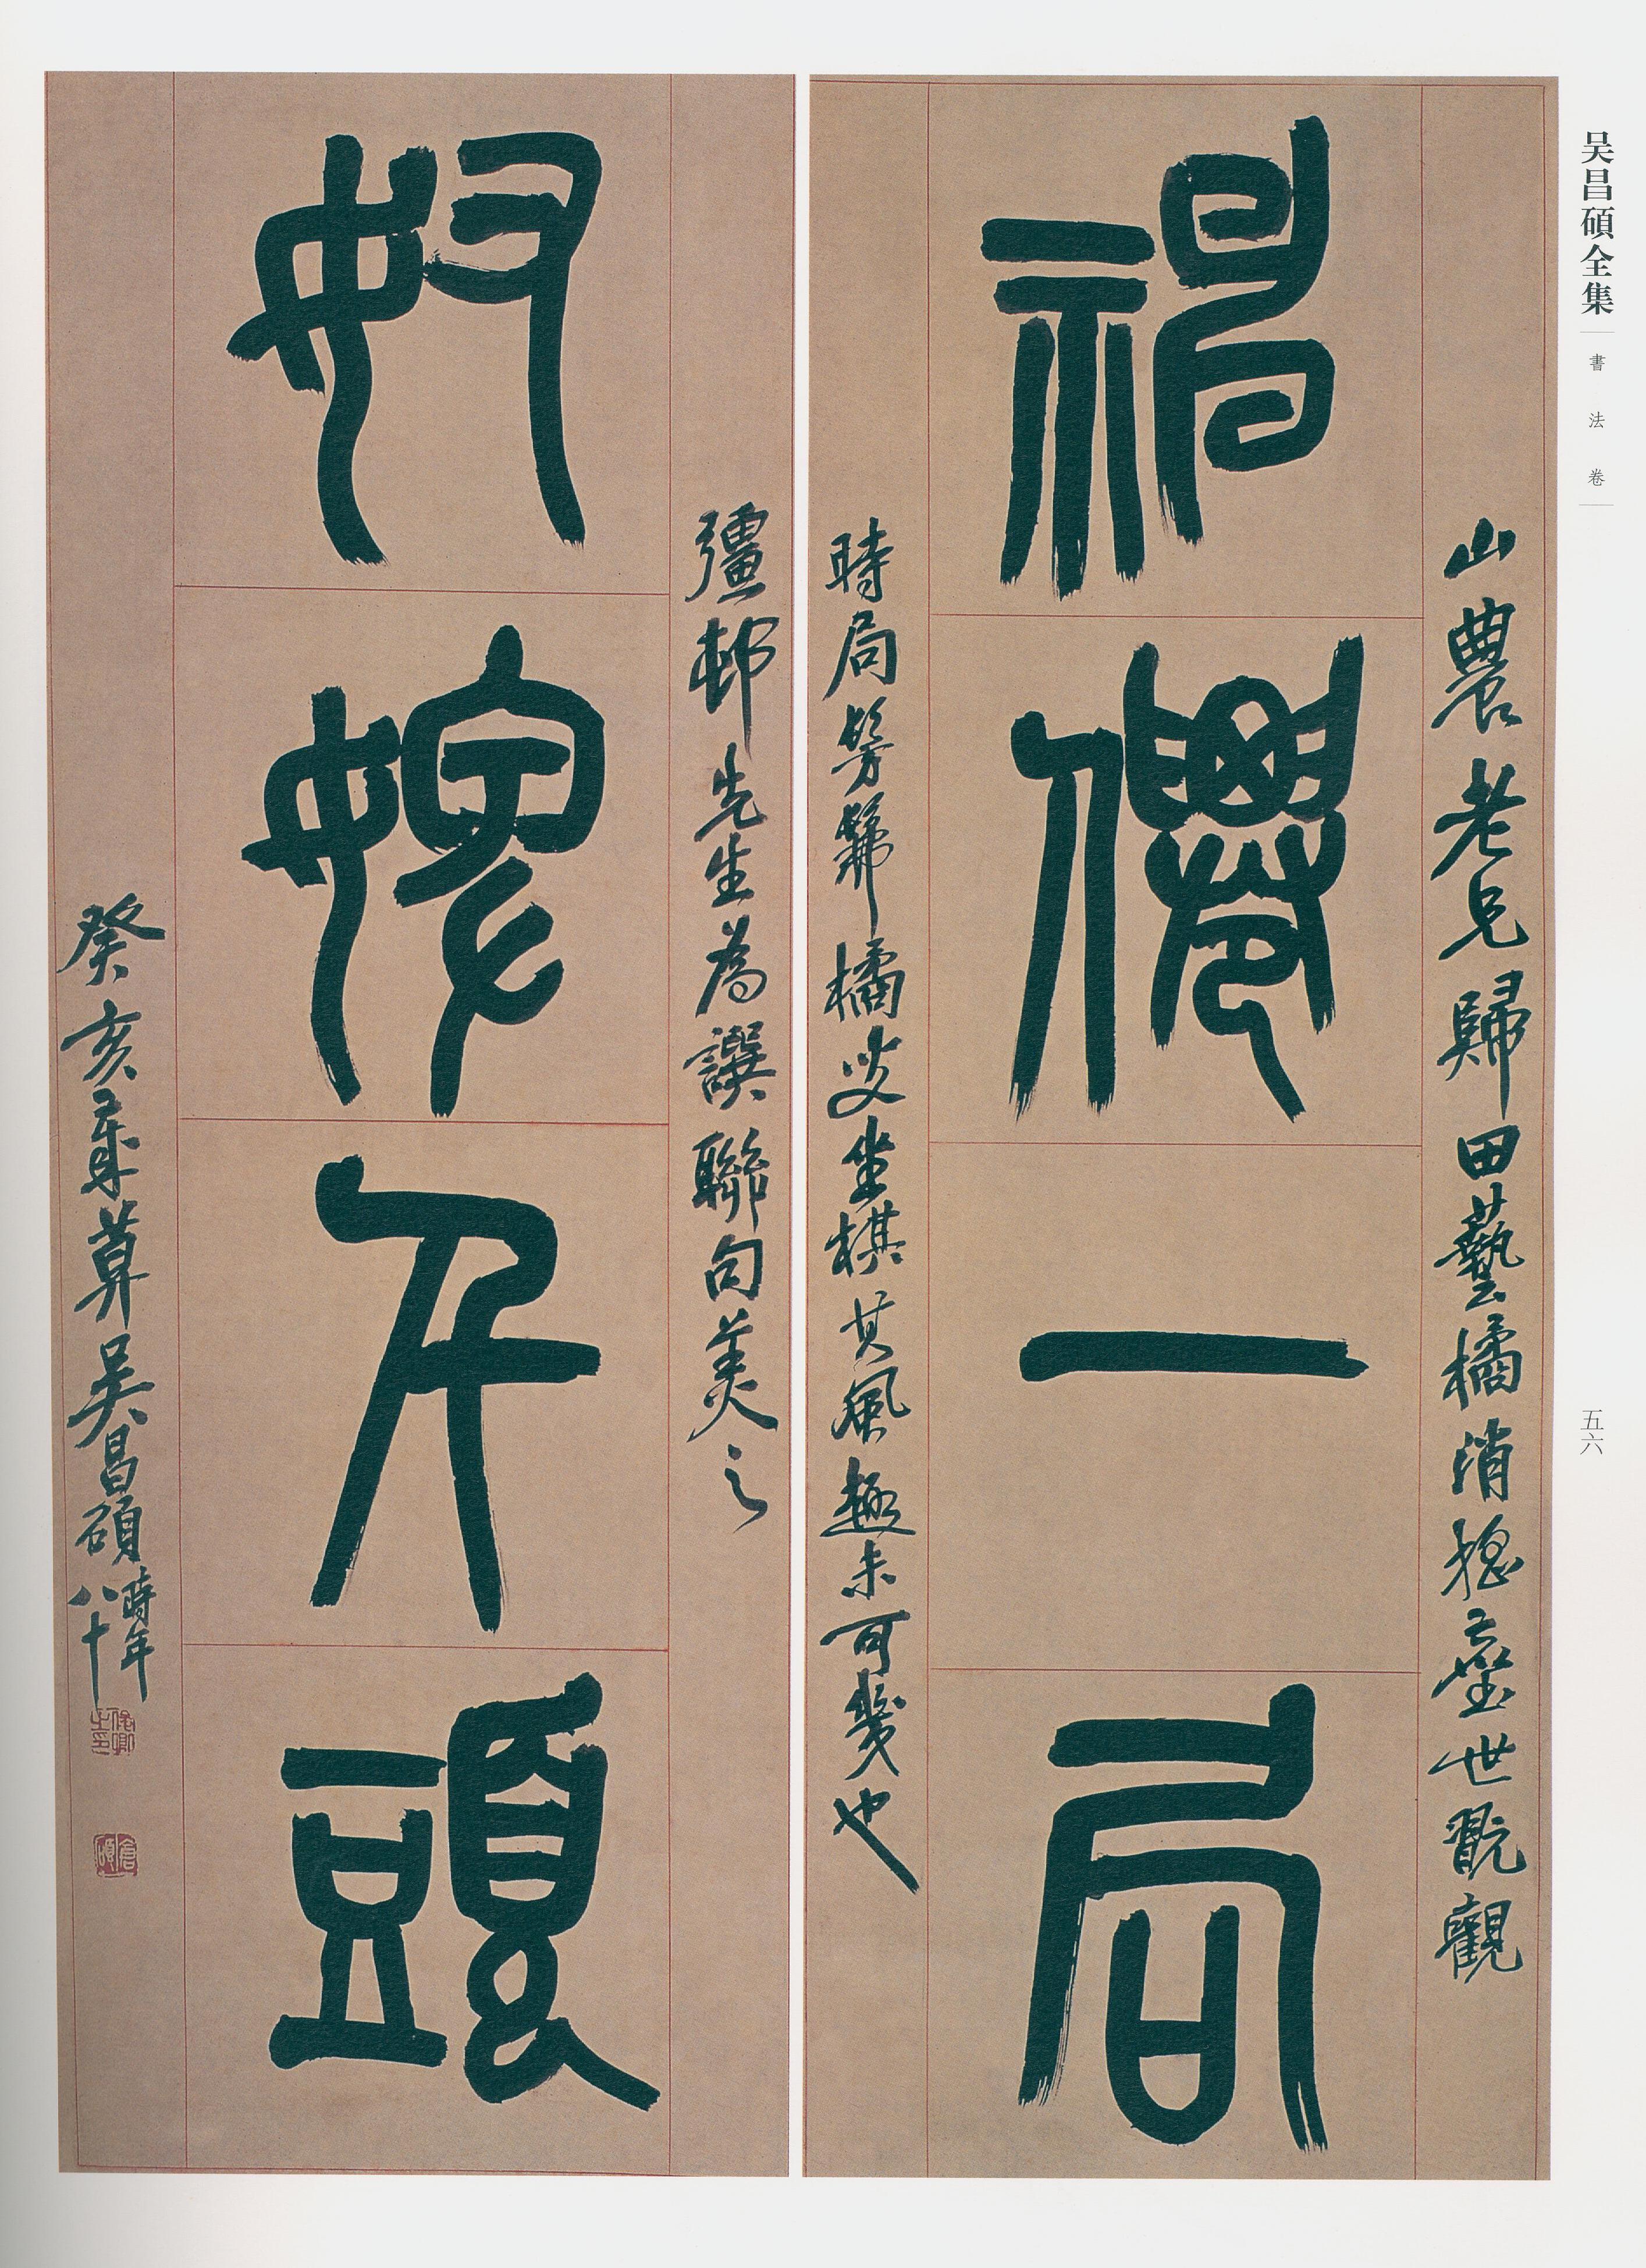 吴昌碩全集
書法卷
五六
山農老兄歸田藝橘消搖塵世翫觀
神僊一局
時局髣髴橘叟坐棋其風趣未可幾也
彊邨先生為譔聯句美之
奴婢千頭
癸亥歲莫吳昌碩時年八十
俊卿之印
倉碩